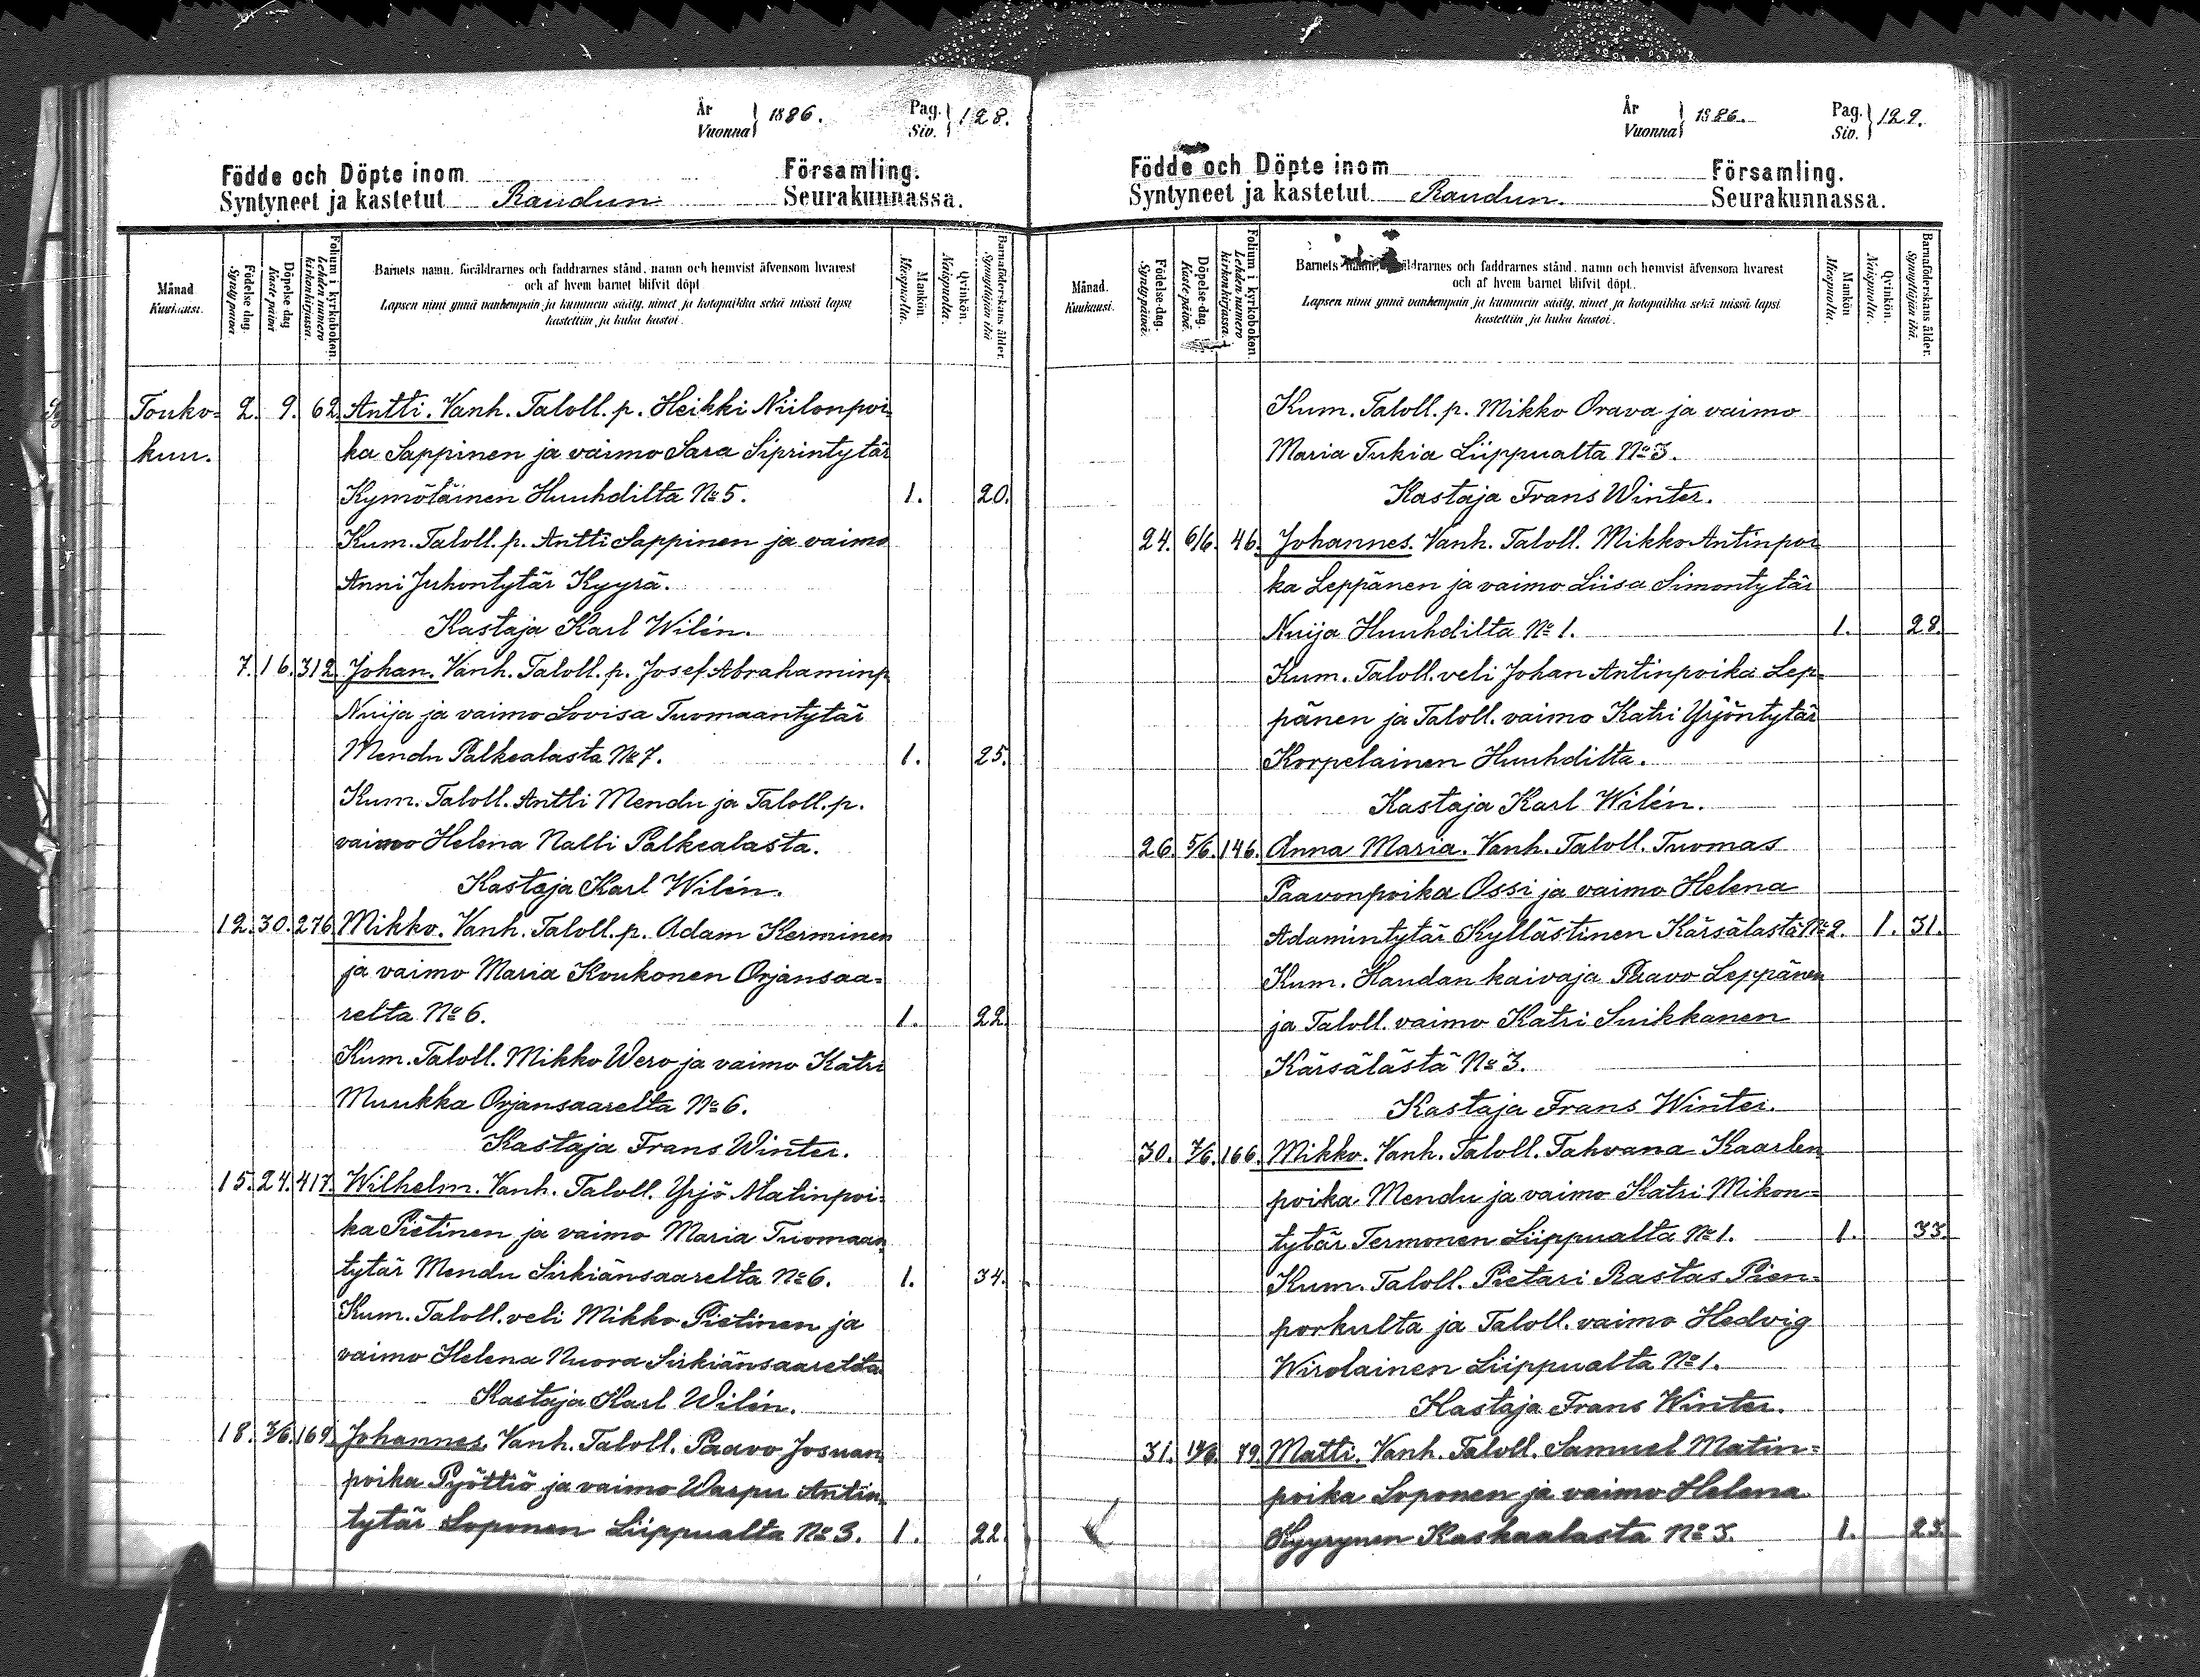 År Vuonna } 1886. Pag. Siv. } 128.
Födde och Döpte inom Församling.
Syntyneet ja kastetut Raudun Seurakunnassa.
Månad. Kuukausi.
Födelse-dag. Syntypäivä.
Döpelse-dag Kastepäivä
Folium i kyrkoboken. Lehden numero kirkonkirjassa.
Barnets namn, föräldrarnes och faddrarnes stånd, namn och hemvist äfvensom hvarest
och af hvem barnet blifvit döpt.
Lapsen nimi ynnä vanhempain ja kummein sääty, nimet ja kotopaikka sekä missä lapsi
kastettiin ja kuka kastoi.
Mankön. Miespuolta.
Qvinkön. Naispuolta.
Barnaföderskans ålder. Synnyttäjän ikä
Touko= 2. 9. 62. Antti. Vanh. Taloll. p. Heikki Niilonpoi
kuu. ka Sappinen ja vaimo Sara Siprintytär
Kymöläinen Huuhdilta No 5. 1. 20.
Kum. Taloll. p. Antti Sappinen ja vaimo
Anni Juhontytär Kyyrä.
Kastaja Karl Wilén.
7. 16. 312. Johan. Vanh. Taloll. p. Josef Abrahaminp
Nuija ja vaimo Lovisa Tuomaantytär
Mendu Palkealasta No 7. 1. 25.
Kum. Taloll. Antti Mendu ja Taloll. p.
vaimo Helena Nalli Palkealasta.
Kastaja Karl Wilén.
12. 30. 276. Mikko. Vanh. Taloll. p. Adam Kerminen
ja vaimo Maria Koukonen Orjansaa=
relta No 6. 1. 22.
Kum. Taloll. Mikko Wero ja vaimo Katri
Muukka Orjansaarelta No 6.
Kastaja Frans Winter.
15. 24. 417. Wilhelm. Vanh. Taloll. Yrjö Matinpoi=
ka Pietinen ja vaimo Maria Tuomaan
tytär Mendu Sirkiänsaarelta No 6. 1. 34.
Kum. Taloll. veli Mikko Pietinen ja
vaimo Helena Nuora Sirkiänsaarelta
Kastaja Karl Wilén.
18. 3/6. 169. Johannes. Vanh. Taloll. Paavo Josuan
poika Pyöttiö ja vaimo Warpu Antin
tytär Loponen Liippualta No 3. 1. 22.
År Vuonna } 1886. Pag. Siv. } 129.
Födde och Döpte inom Församling.
Syntyneet ja kastetut Raudun. Seurakunnassa.
Månad. Kuukausi.
Födelse-dag. Syntypäivä.
Döpelse-dag. Kastepäivä.
Folium i kyrkoboken. Lehden numero kirkonkirjassa.
Barnets föräldrarnes och faddrarnes stånd, namn och hemvist äfvensom hvarest
och af hvem barnet blifvit döpt.
Lapsen nimi ynnä vanhempain ja kummein sääty, nimet ja kotopaikka sekä missä lapsi
kastettiin ja kuka kastoi.
Mankön. Miespuolta.
Qvinkön. Naispuolta.
Barnaföderskans ålder. Synnyttäjän ikä.
Kum. Taloll. p. Mikko Orava ja vaimo
Maria Tukia Liippualta No 3.
Kastaja Frans Winter.
24. 6/6. 46. Johannes. Vanh. Taloll. Mikko Antinpoi
ka Leppänen ja vaimo Liisa Simontytär
Nuija Huuhdilta No 1. 1. 28.
Kum. Taloll. veli Johan Antinpoika Lep=
pänen ja Taloll. vaimo Katri Yrjöntytär
Korpelainen Huuhdilta.
Kastaja Karl Wilén.
26. 5/6. 146. Anna Maria. Vanh. Taloll. Tuomas
Paavonpoika Ossi ja vaimo Helena
Adamintytär Kyllästinen Kärsälästä No 2. 1. 31.
Kum. Haudan kaivaja Paavo Leppänen
ja Taloll. vaimo Katri Suikkanen
Kärsälästä No 3.
Kastaja Frans Winter.
30. 7/6. 166. Mikko. Vanh. Taloll. Tahvana Kaarlen
poika Mendu ja vaimo Katri Mikon=
tytär Termonen Liippualta No 1. 1. 33.
Kum. Taloll. Pietari Rastas Pien=
porkulta ja Taloll. vaimo Hedvig
Wirolainen Liippualta No 1.
Kastaja Frans Winter.
31. 79. Matti. Vanh. Taloll. Samuel Matin=
poika Loponen ja vaimo Helena
Kyyrynen Kaskaalasta No 3. 1. 23.